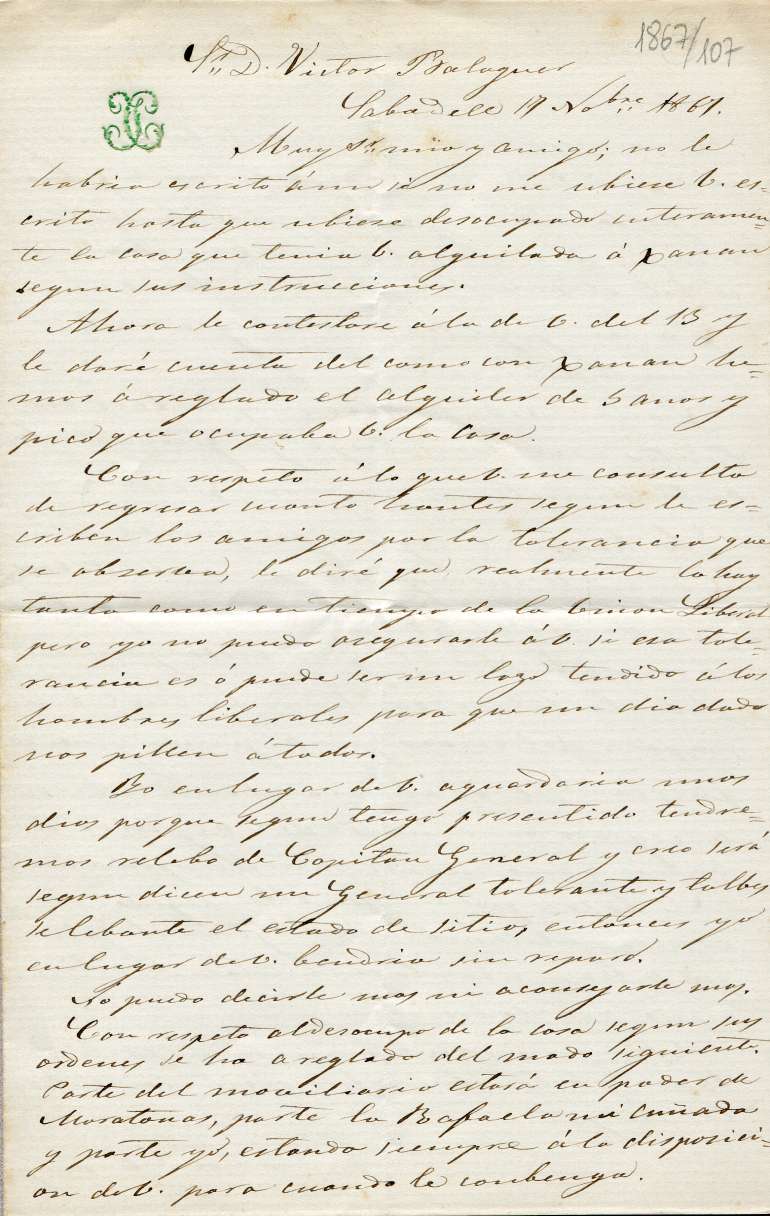 1867/107
Sr. D. Victor Balaguer
Sabadell 17 Nobre 1867.
Muy Sr. mio y amigo; no le
habria escrito áun si no me ubiese V. es-
crito hasta que ubiese desocupado enteramen-
te la casa que tenia V. alquilada á Xanan
segun sus instrucciones.
Ahora le contestare á la de V. del 13 y
le daré cuenta del como con Xanan he-
mos á reglado el alquiler de 5 anos y
pico que ocupaba V. la casa.
Con respeto á lo que V. me consulta
de regresar cuanto hantes segun le es-
criben los amigos por la tolerancia que
se observa, le diré que realmente la hay
tanta como en tiempo de la Union Liberal
pero yo no puedo asegurarle á V. si esa tole-
rancia es ó puede ser un lazo tendido á los
hombres liberales para que un dia dado
nos pillen átodos.
Yo en lugar de V. aguardaria unos
dias porque segun tengo presentido tendre-
mos relebo de Capitan General y creo será
segun dicen un General tolerante y talbes
se lebante el estado de sitio, entonces yo
en lugar de V. bendria sin reparo.
No puedo decirle mas ni aconsejarle mas.
Con respeto al desocupo de la casa segun sus
ordenes se ha areglado del modo siguiente.
Parte del moviliario estará en poder de
Maratonas, parte la Rafaela mi cuñada
y parte yo, estando siempre á la disposici-
on de V. para cuando le conbenga.